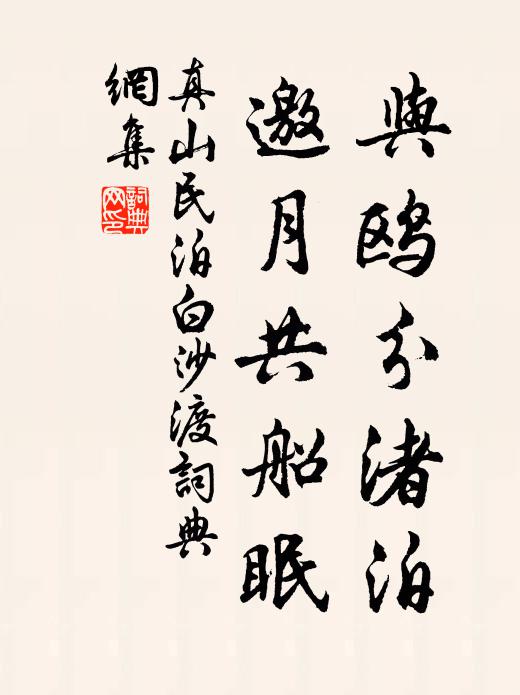 與鸥分渚泊
邀月共船眠
真山民泊白沙渡詞典
網集
詞典網印